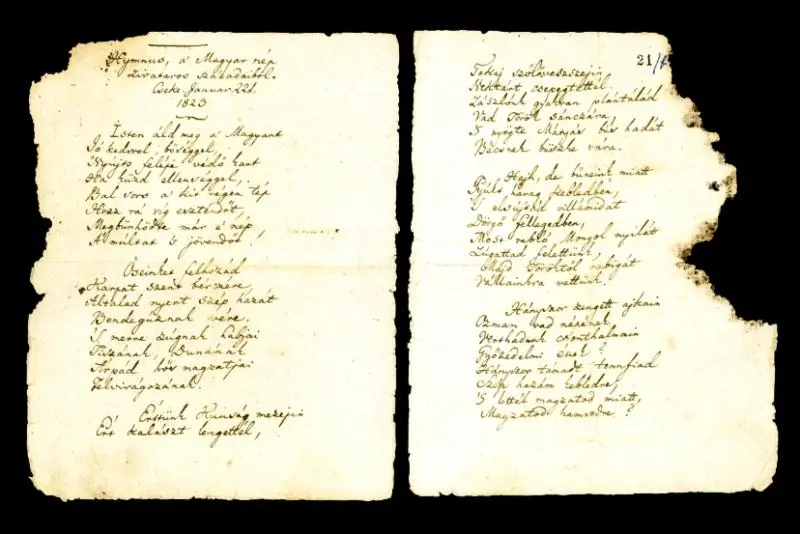 Hymnus, a' Magyar nép
zivataros századaiból.
Cseke Januar. 22d.
1823
Isten áld meg a' Magyart
Jó kedvvel, bőséggel,
Nyújts feléje védő kart
Ha küzd ellenséggel,
Bal sors a' kit régen tép
Hozz rá víg esztendőt,
Megbűnhődte már e' nép
A' multat 's jövendőt!
Őseinket felhozád
Kárpát szent bérczére,
Általad nyert szép hazát
Bendegúznak vére.
'S merre zúgnak habjai
Tiszának, Dunának
Árpád hős magzatjai
Felvirágozának.
Értünk Kunság mezejin
Ért kalászt lengettél,
21/
Tokaj szőlővesszejin
Nektárt csepegtettél.
Zászlónk gyakran plántálád
Vad Török sánczára,
'S nyögte Mátyás bús hadát
Bécsnek büszke vára.
Hajh, de bűneink miatt
Gyúlt harag kebledben,
'S elsújtád villámidat
Dörgő fellegedben,
Most rabló Mongol nyilát
Zúgattad felettünk,
Majd Töröktől rabigát
Vállainkra vettünk.
Hányszor zengett ajkain
Ozman vad népének
Vert hadunk csonthalmain
Győzedelmi ének?
Hányszor támadt tennfiad
Szép hazám kebledre,
'S lettél magzatod miatt,
Magzatod hamvvedre?